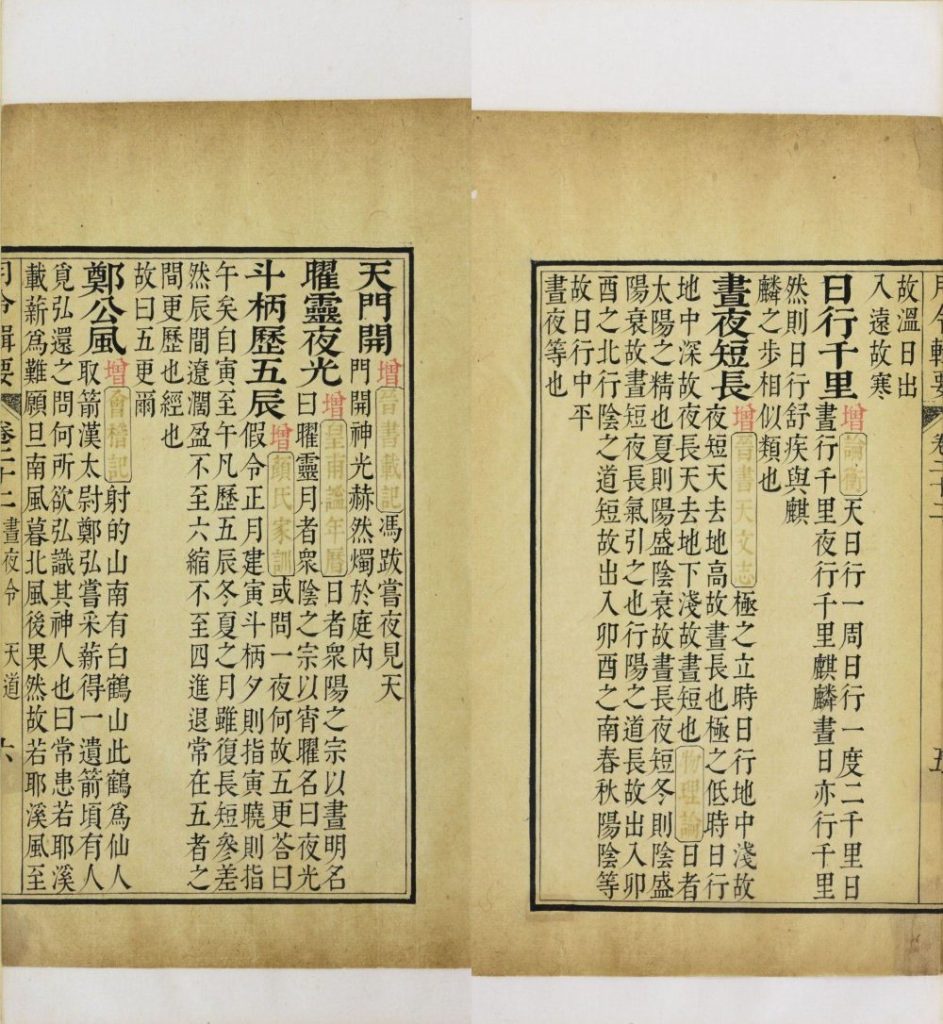 月令輯要 卷二十二 五
故溫日出
入遠故寒
日行千里 增論衡天日行一周日行一度二千里日
晝行千里夜行千里麒麟晝日亦行千里
然則日行舒疾與麒
麟之步相似類也
晝夜短長 增晉書天文志極之立時日行地中淺故
夜短天去地高故晝長也極之低時日行
地中深故夜長天去地下淺故晝短也物理論日者
太陽之精也夏則陽盛陰衰故晝長夜短冬則陰盛
陽衰故晝短夜長氣引之也行陽之道長故出入卯
酉之北行陰之道短故出入卯酉之南春秋陽陰等
故日行中平
晝夜等也
天門開 增晉書載記馮跋嘗夜見天
門開神光赫然燭於庭內
曜靈夜光 增皇甫謐年曆日者衆陽之宗以晝明名
曰曜靈月者衆陰之宗以宵曜名曰夜光
斗柄歷五辰 增顏氏家訓或問一夜何故五更答曰
假令正月建寅斗柄夕則指寅曉則指
午矣自寅至午凡歷五辰冬夏之月雖復長短參差
然辰間遼濶盈不至六縮不至四進退常在五者之
間更歷也經也
故曰五更爾
鄭公風 增會稽記射的山南有白鶴山此鶴爲仙人
取箭漢太尉鄭弘嘗采薪得一遺箭頃有人
覓弘還之問何所欲弘識其神人也曰常患若耶溪
載薪爲難願旦南風暮北風後果然故若耶溪風至
月令輯要 卷二十二 晝夜令 天道 六